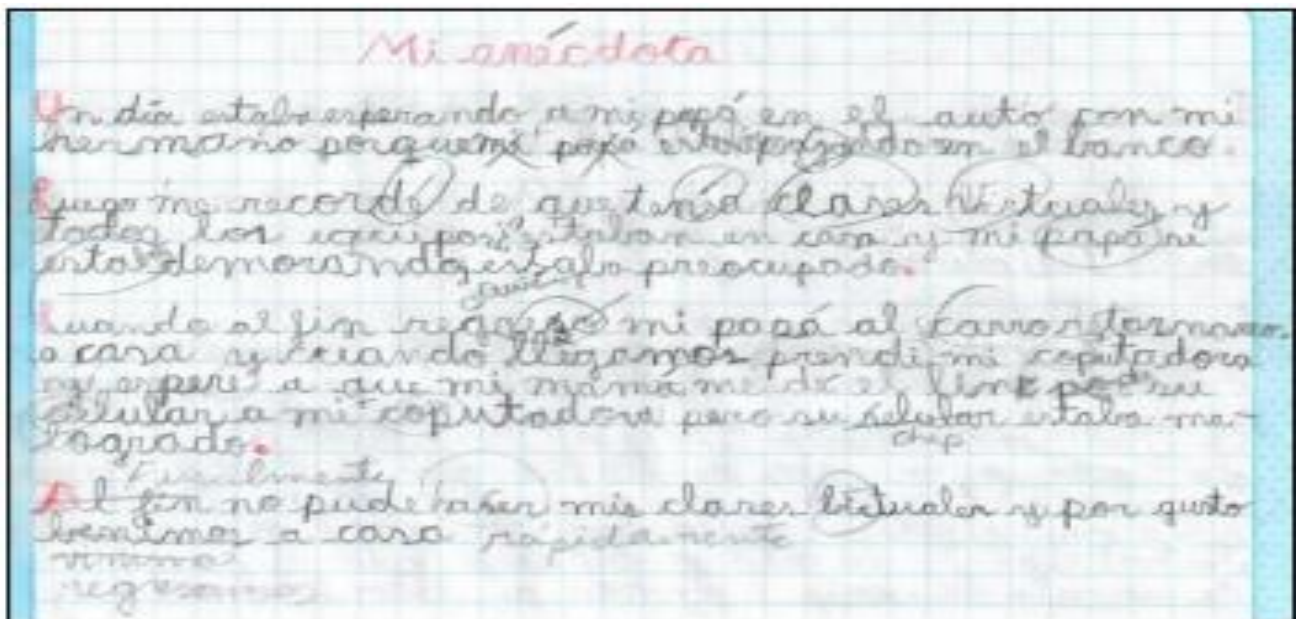 Mi anécdota
Un día estaba esperando a mi papá en el auto con mi
hermano porque mi papá estaba en el banco.
Luego me recordé de que tenía clases virtuales y
todos los equipos estaban en casa y mi papá se
estaba demorando, estaba preocupado.
Cuando al fin regreso mi papá al carro retornamos
a casa y cuando llegamos prendí mi coputadora
y esperé a que mi mamá me de el link de su
celular a mi coputadora pero su selular estaba ma-
chip
logrado.
Finalmente
Al fin no pude haser mis clases birtuales y por gusto
benimos a casa rápidamente
vinimos
regresamos